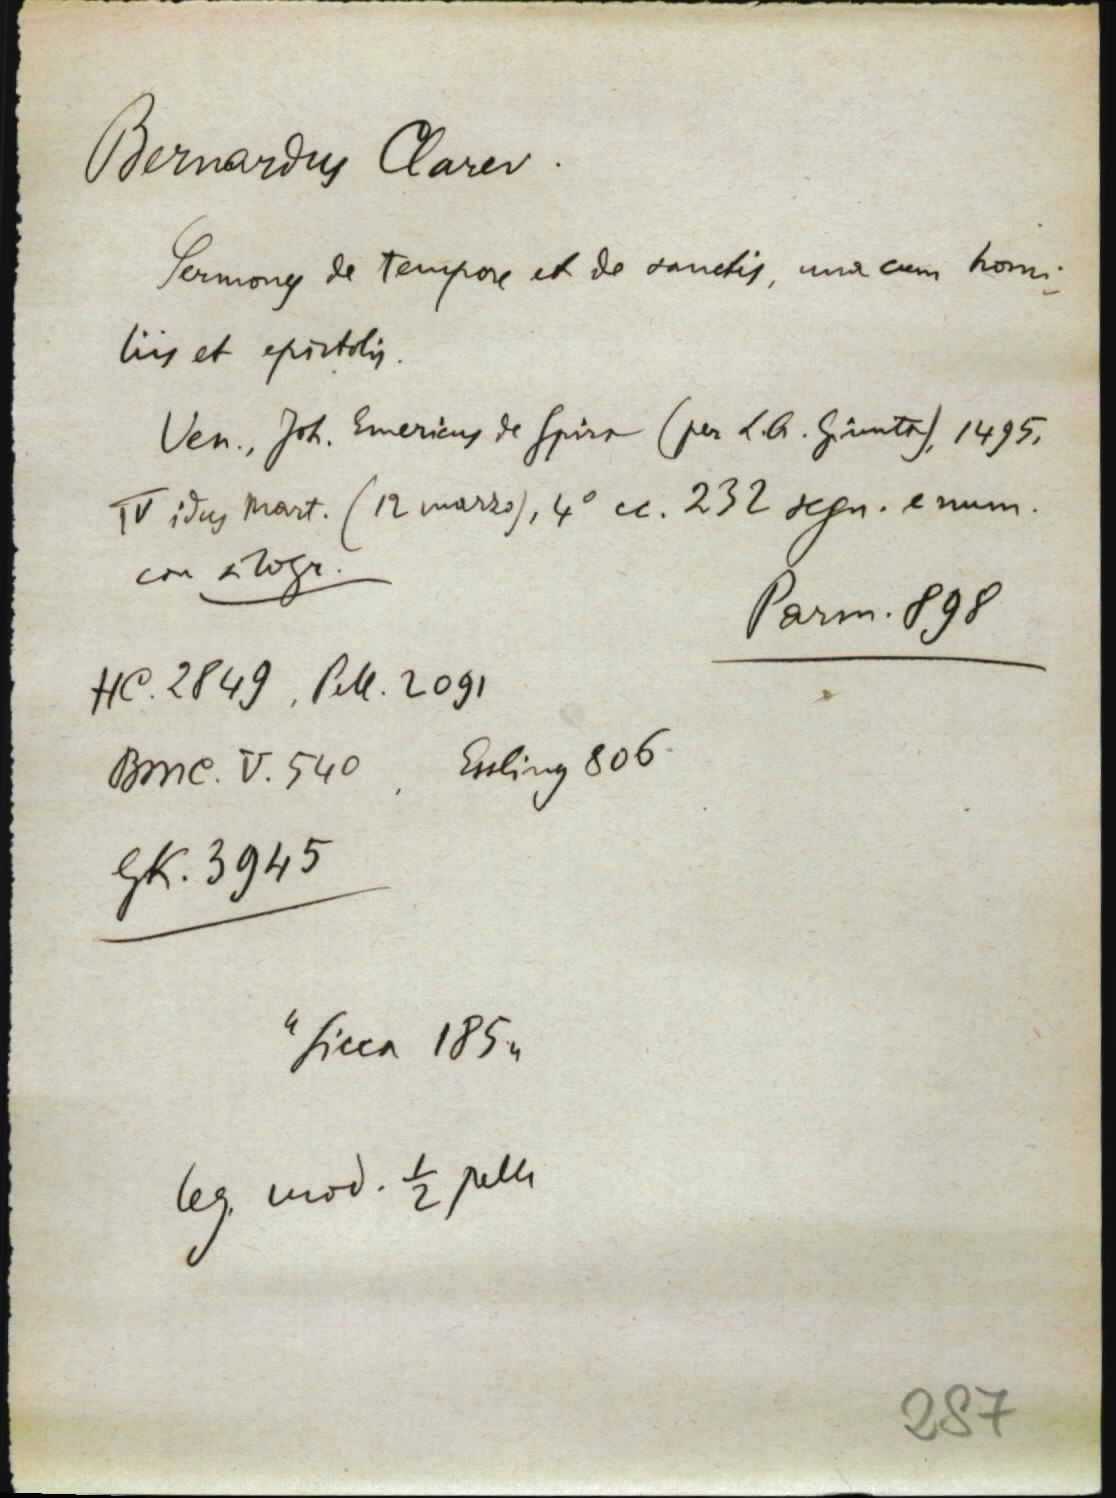 Bernardus Clarev.
Sermones de tempore et de sanctis, una cum homi-
liis et epistolis.
Ven., Joh. Emericus de Spira (per L.A. Giunta), 1495,
IV idus Mart. (12 marzo), 4° cc. 232 segn. e num.
con silogr.
Parm. 898
HC. 2849, Pell. 2091
BMC. V. 540, Essling 806
GK. 3945
"Sicca 185"
leg. mod. ½ pelle
287